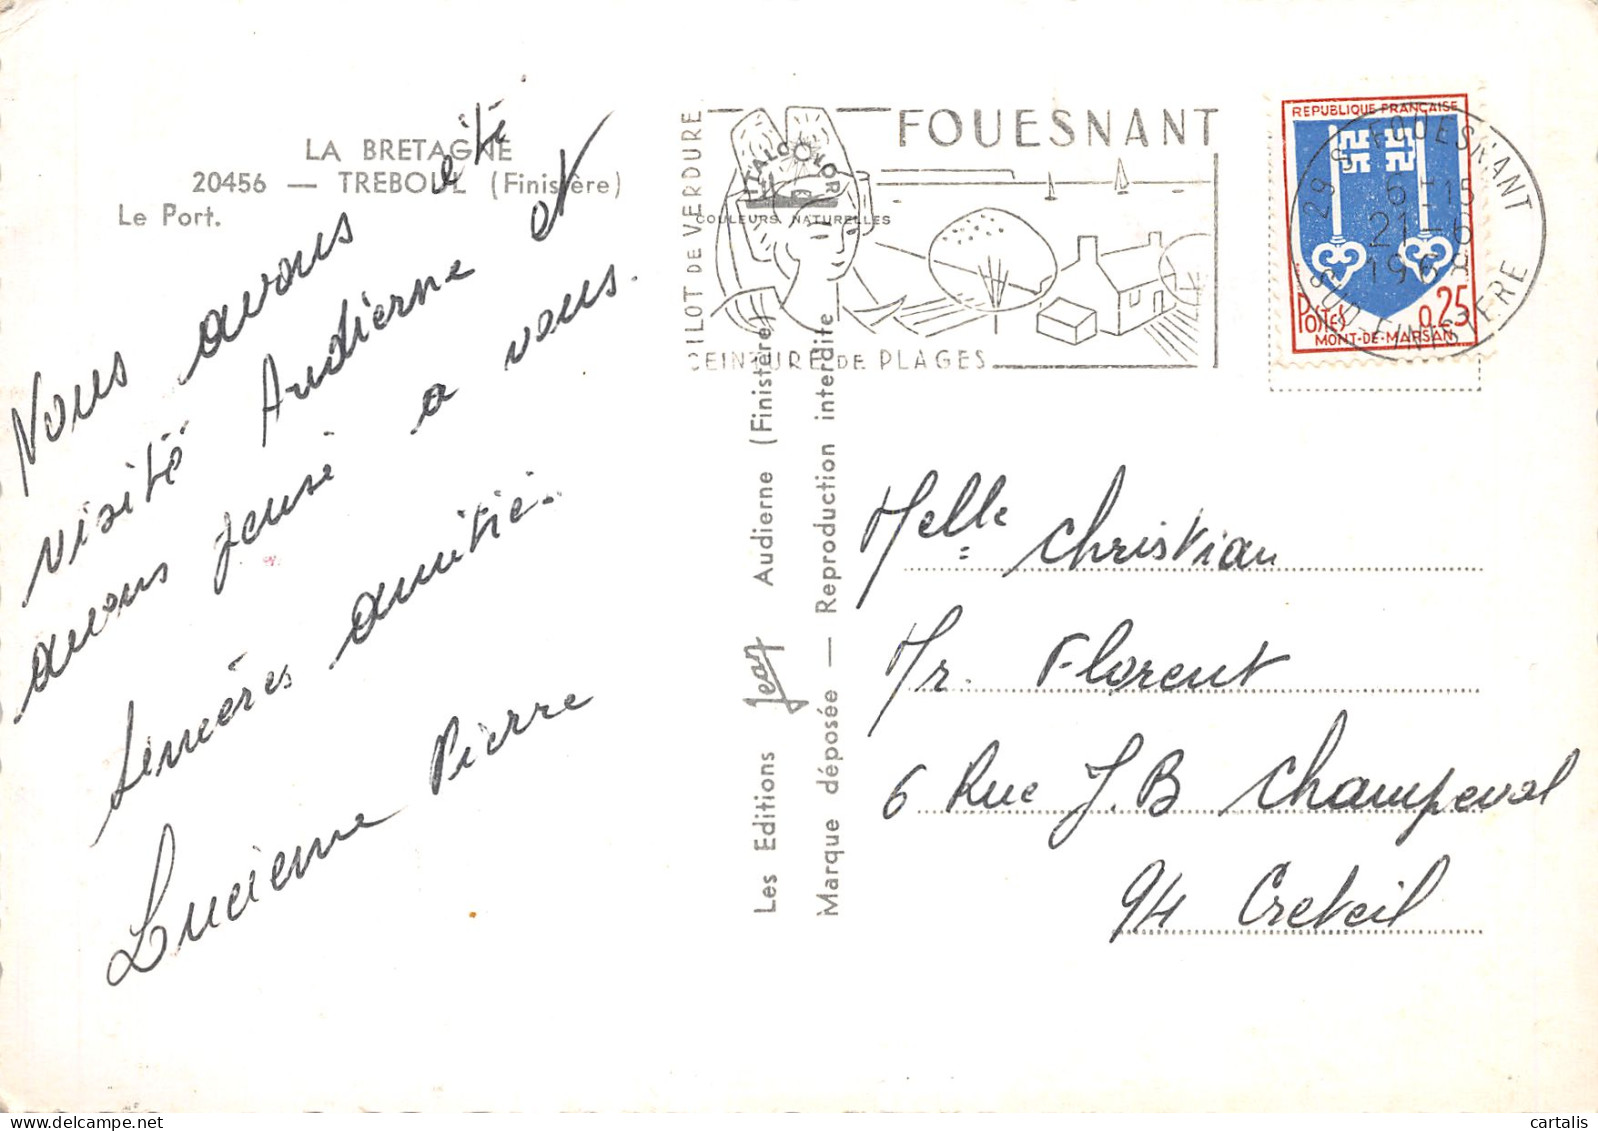 LA BRETAGNE
20456 — TREBOUL (Finistère)
Le Port.
Nous avons eité
visité Audierne et
avons pensé a vous.
amitié.
Lucienne Pierre
Les Editions Jean Audierne (Finistère)
Marque déposée — Reproduction interdite
ITALCOLOR
COULEURS NATURELLES
FOUESNANT
ILOT DE VERDURE
CEINTURE DE PLAGES
REPUBLIQUE FRANÇAISE
POSTES
0,25
MONT-DE-MARSAN
29 S FOUESNANT
6-15
21-6
1968
SUD-FINISTERE
Melle Christian
Mr. Florent
6 Rue J.B Champeval
94 Creteil
cartalis